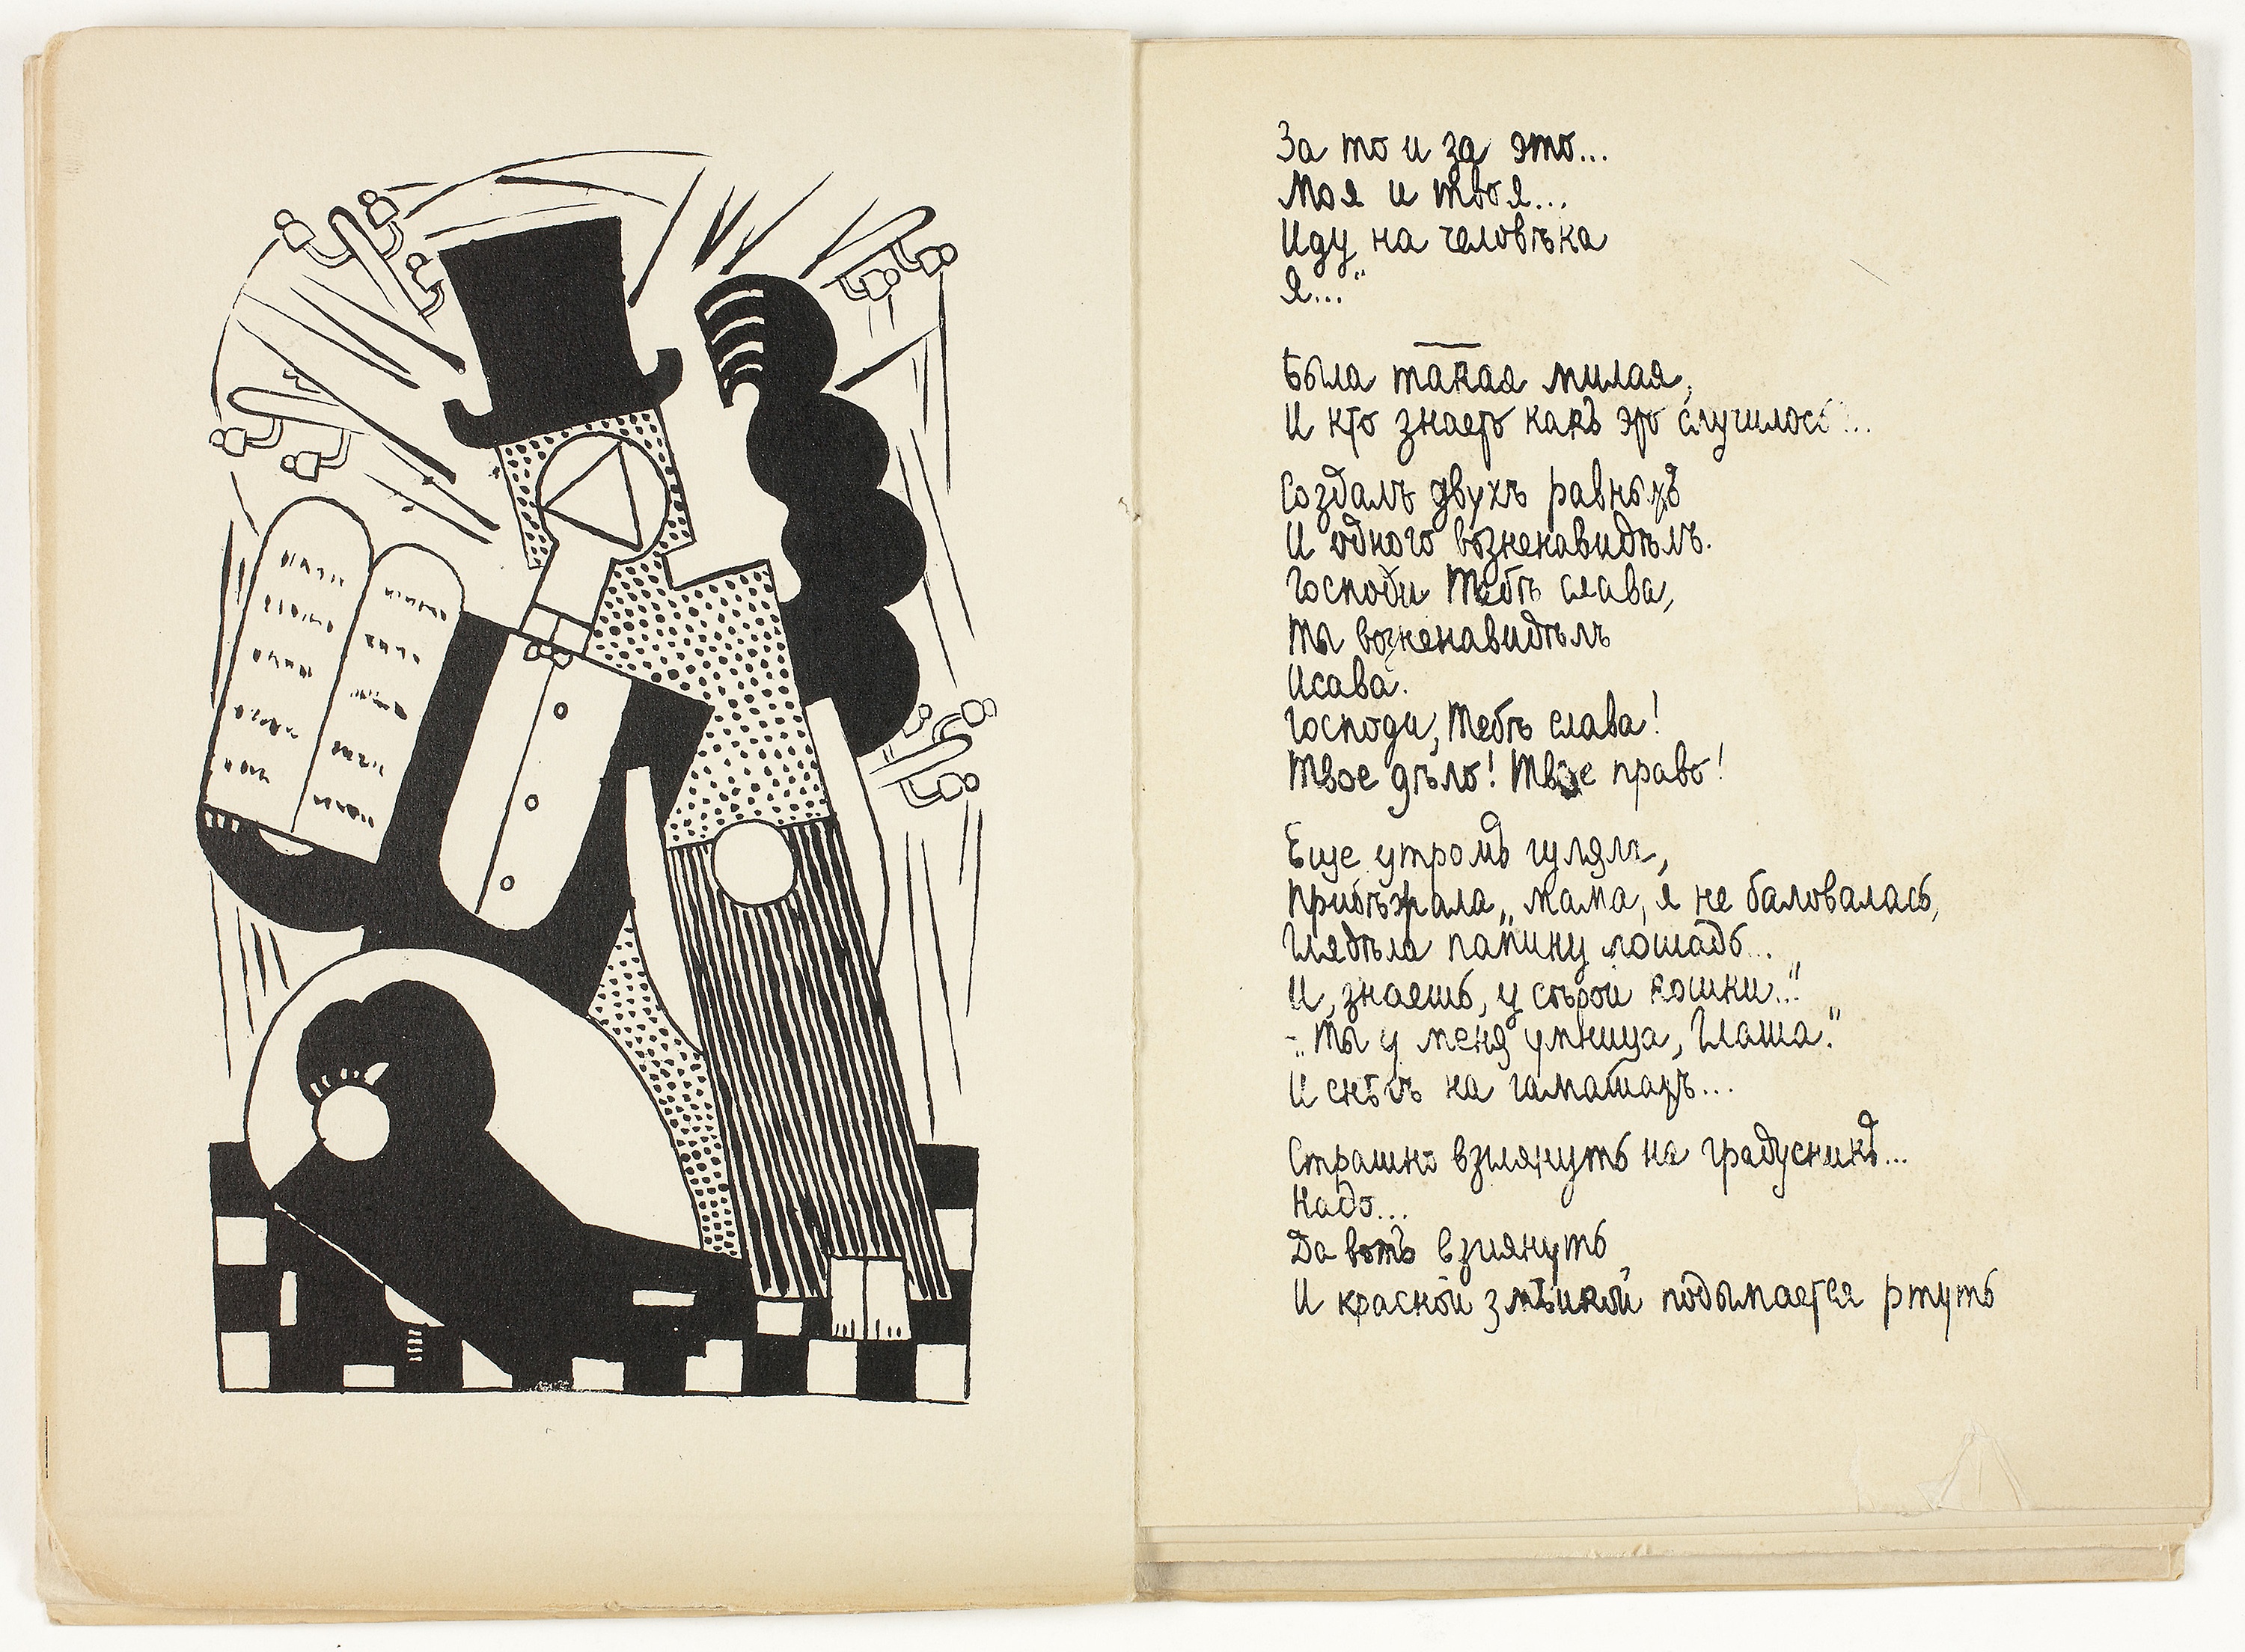 За то и за это...
Моя и твоя...
Иду на человѣка
Я..."
Была такая милая,
И кто знаетъ какъ это случилось...
Создалъ двухъ равныхъ
И одного возненавидѣлъ.
Господи Тебѣ слава,
Ты возненавидѣлъ
Исава.
Господи, Тебѣ слава!
Твое дѣло! Твое право!
Еще утромъ гуляла,
Прибѣжала „Мама, я не баловалась,
Глядѣла папину лошадь...
И, знаешь, у сѣрой кошки..."
- „Ты у меня умница, Глаша."
И снѣгъ на гамашахъ...
Страшно взглянуть на градусникъ...
Надо...
Да вотъ взглянуть
И красной змѣйкой подымается ртуть